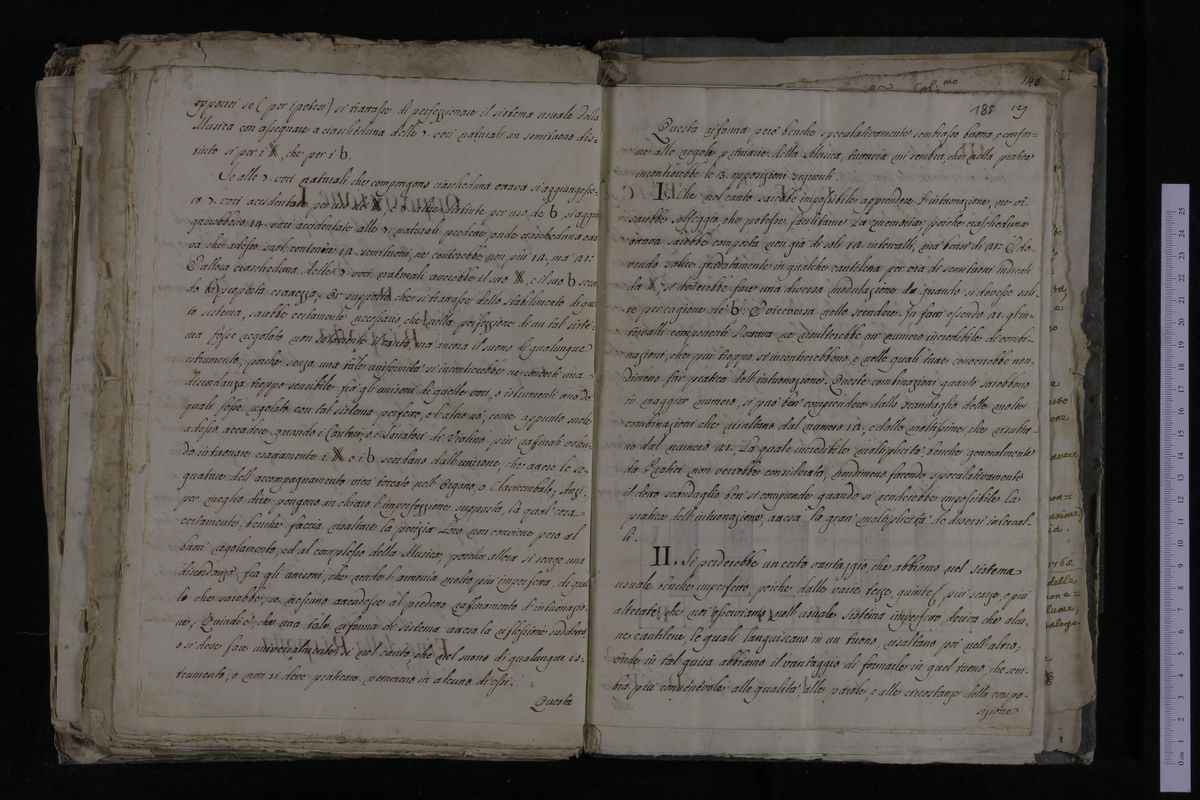 opporci se (per ipotesi) si trattasse di perfezzionare il sistema usuale della
Musica con assegnare a ciascheduna delle 7. voci naturali un semituono dis-
tinto sì per i ※, che per i b.
Se alle 7 voci naturali che compongono ciascheduna ottava si aggiungesse-
ro 7. voci accidentate per uso de ※, e altre 7 distinte per uso de b, si aggiu-
gnerebbono 14 voci accidentate alle 7 naturali predette, onde ciascheduna otta-
va che adesso suol contenere 12 semituoni, ne conterrebbe non più 12, ma 21:
E allora ciascheduna delle 7 voci naturali averebbe il suo ※, e il suo b secon-
do la proposta esattezza. Or supposto che si trattasse dello stabilimento di ques-
to sistema, sarebbe certamente necessario che nella perfezzione di un tal siste-
ma fosse regolato non solamente il canto, ma ancora il suono di qualunque
istrumento, perchè senza una tale uniformità s'incontrerebbe ne concerti una
discordanza troppo sensibile frà gli unisoni di quelle voci, o istrumenti uno de
quali fosse regolato con tal sistema perfetto, e l'altro nò, come appunto suole
adesso accadere quando i Cantori, o i Sonatori di Violino più raffinati volen-
do intuonare esattamente i ※ e i b scordano dall'unisone, che anno le se-
guature dell'accompagnamento vicin toccate nell'Organo, o Clavicembalo; Anzi
per meglio dire pongono in chiaro l'imperfezzione supposta, la qual cosa
certamente, benchè faccia risaltare la perizia loro non conviene però al
buon regolamento, ed al complesso della Musica, perchè allora si sente una
discordanza frà gli unisoni, che rende l'armonia molto più imperfetta, di quel
lo che sarebbe, se nessuno attendesse al predetto raffinamento d'intuonazio-
ne; Quindi è, che una tale riforma di sistema attesa la riflessione suddetta
o si deve fare universalmente e nel canto, che nel suono di qualunque is-
trumento, o non si deve praticare nemmeno in alcuno di essi.
Questa
140
185 129
Questa riforma però benchè speculativamente sembrasse buona, e confor-
me alle regole primarie della Musica, tuttavia mi sembra, che nella pratica
incontrerebbe le 3. opposizioni seguenti.
I. Che nel canto sarebbe impossibile apprendere l'intuonazione, ne vi
sarebbe solfeggio che potesse facilitarne la memoria, poichè ciascheduna
ottava sarebbe composta non già di soli 12 intervalli, ma bensì di 21: E do-
vendo salire gradatamente in qualche cantilena per via di semituoni indicati
da ※, si dovrebbe fare una diversa modulazione da quando si dovesse sali-
re per cagione de b: E viceversa nello scendere. In fatti essendo 21. gl'in-
tervalli componenti l'ottava ne risulterebbe un numero incredibile di combi-
nazioni, che pur troppo si incontrerebbono, e nelle quali tutte converrebbe non-
dimeno far pratica dell'intuonazione. Queste combinazioni quanto sarebbono
in maggior numero, si può ben comprendere dallo scandaglio delle molte
combinazioni che risultano dal numero 12, e dalle moltissime che risulta-
no dal numero 21. La quale incredibile moltiplicità benchè generalmente
da Pratici non verrebbe considerata, nondimeno facendo speculativamente
il detto scandaglio ben si comprende quando si renderebbe impossibile la
pratica dell'intuonazione, attesa la gran moltiplicità de diversi interval-
li.
II. Si perderebbe un certo vantaggio che abbiamo nel sistema
usuale benchè imperfetto, poichè dalle varie terze, quinte &c. più scarse, e più
alterate, che noi esperimentiamo nell'usuale sistema imperfetto, deriva che alcu-
ne cantilene le quali languiscano in un tuono, risaltano poi nell'altro,
onde in tal guisa abbiamo il vantaggio di formarle in quel tuono, che sem-
bra più confacevole alle qualità delle parole, e alle circostanze della compo-
sizione